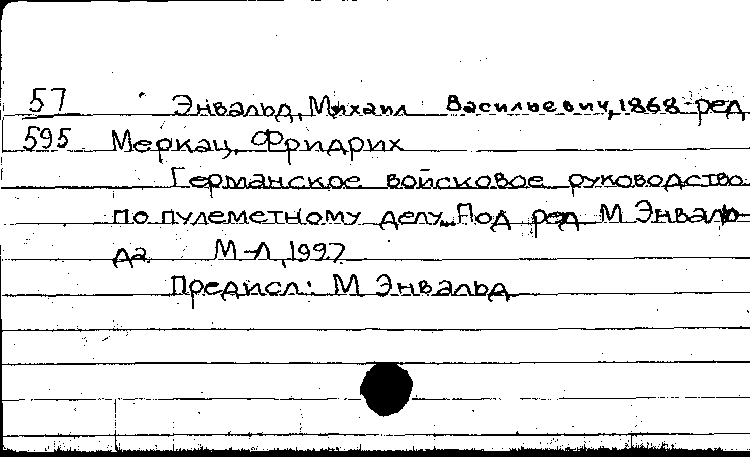 57 Энвальд, Михаил Васильевич, 1868- ред
595 Меркац, Фридрих
Германское войсковое руководство
по пулеметному делу.. Под ред М Энваль-
да М-Л, 1927
Предисл: М Энвальд